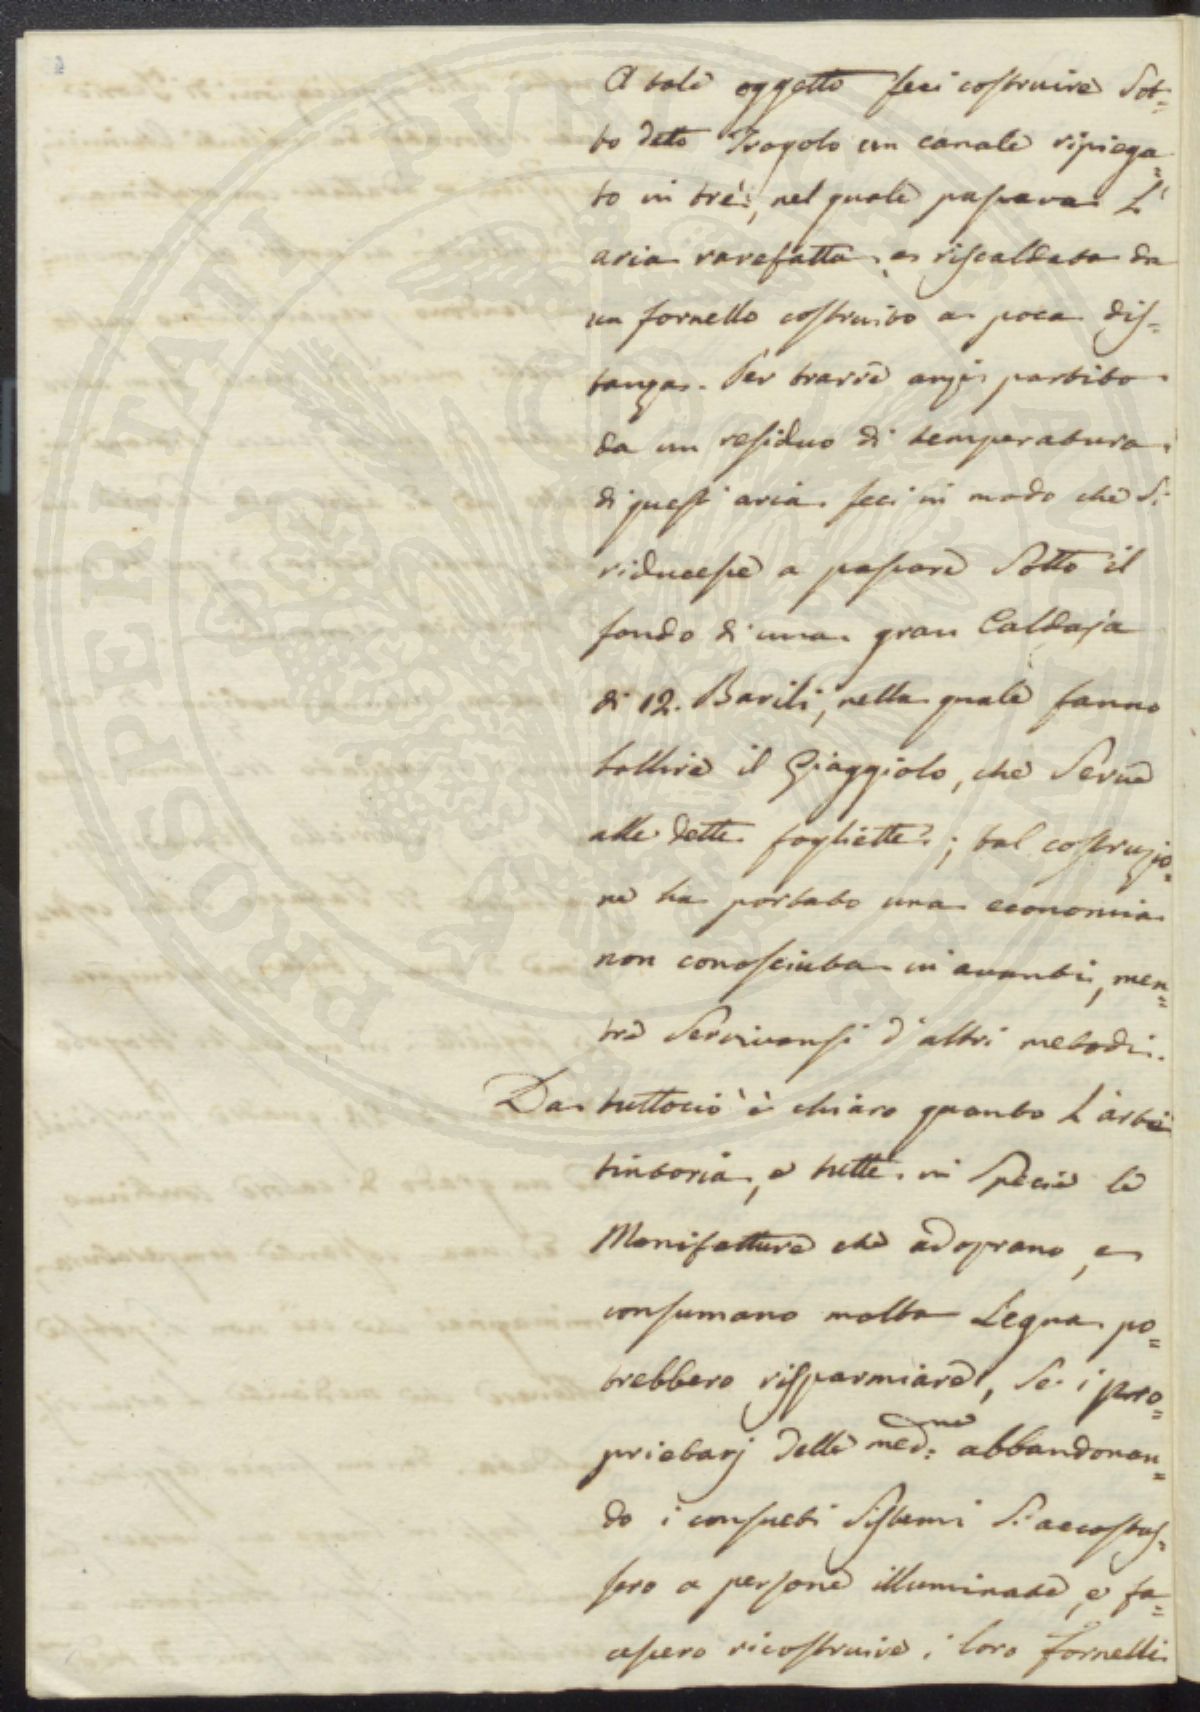 A tale oggetto feci costruire Sot=
to detto Trogolo un canale ripiega=
to in tre:, nel quale passava L'
aria rarefatta, e riscaldata da
un fornello costruito a poca dis=
tanza. Per trarre anzi partito
da un residuo di temperatura
di quest'aria feci in modo che Si
riducesse a passare Sotto il
fondo di una gran Caldaja
di 12. Barili, nella quale fanno
bollire il Giaggiolo, che Serve
alle dette fogliette; tal costruzio=
ne ha portato una economia
non conosciuta in avanti, men=
tre Servivansi d'altri metodi.
Da tuttociò è chiaro quanto L'arte
tintoria, e tutte in Specie le
Manifatture che adoprano, e
consumano molta Legna po=
trebbero risparmiare, Se i pro=
prietarj delle med:me abbandonan=
do i consueti Sistemi Si accostas=
sero a persone illuminate, e fa=
cessero ricostruire i loro fornelli
PROSPERITATI PVBLICAE AVGENDAE